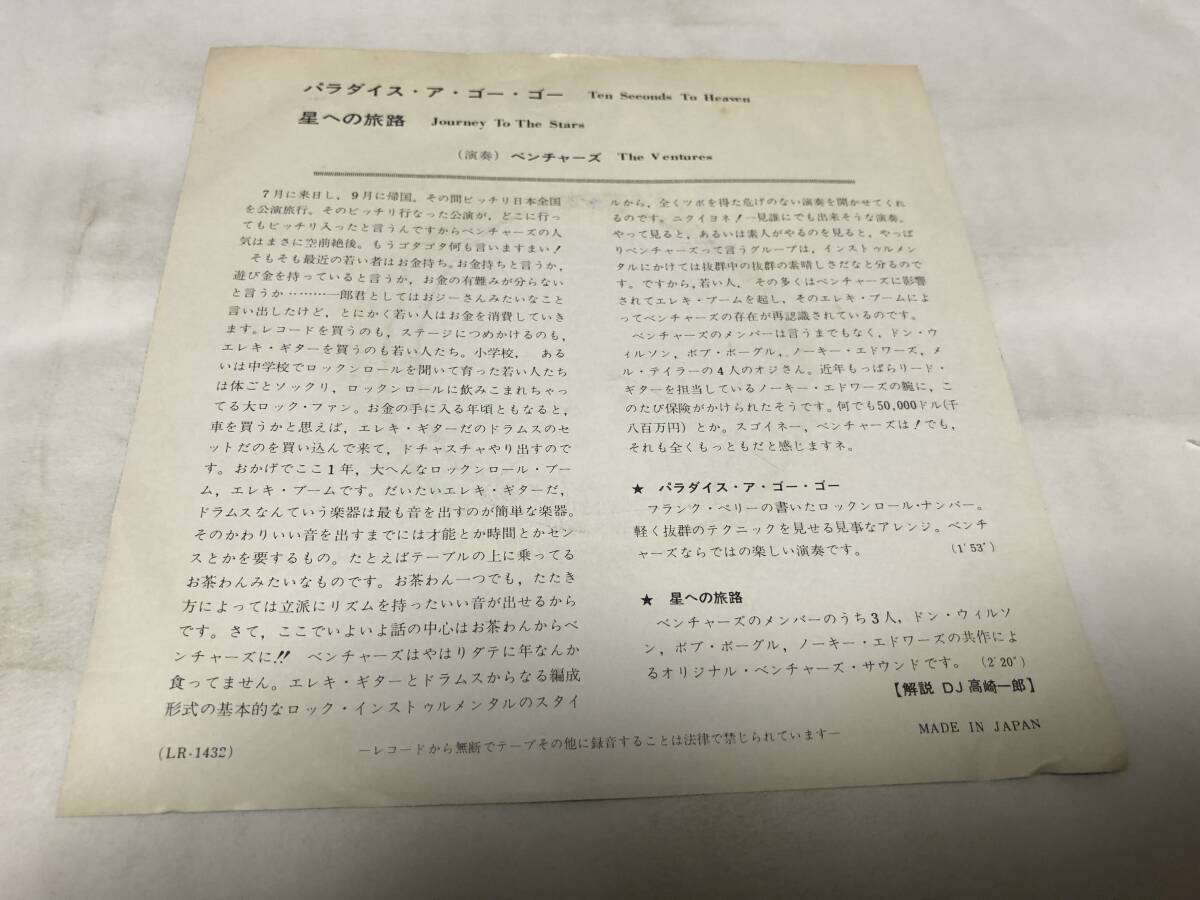 パラダイス・ア・ゴー・ゴー Ten Seconds To Heaven
星への旅路 Journey To The Stars
(演奏) ベンチャーズ The Ventures
7月に来日し,9月に帰国。その間ピッチリ日本全国
を公演旅行。そのピッチリ行なった公演が,どこに行っ
てもピッチリ入ったと言うんですからベンチャーズの人
気はまさに空前絶後。もうゴタゴタ何も言いますまい!
そもそも最近の若い者はお金持ち。お金持ちと言うか,
遊び金を持っていると言うか,お金の有難みが分らない
と言うか………一郎君としてはおジーさんみたいなこと
言い出したけど,とにかく若い人はお金を消費していき
ます。レコードを買うのも,ステージにつめかけるのも,
エレキ・ギターを買うのも若い人たち。小学校, ある
いは中学校でロックンロールを聞いて育った若い人たち
は体ごとソックリ,ロックンロールに飲みこまれちゃっ
てる大ロック・ファン。お金の手に入る年頃ともなると,
車を買うかと思えば,エレキ・ギターだのドラムスのセ
ットだのを買い込んで来て,ドチャスチャやり出すので
す。おかげでここ1年,大へんなロックンロール・ブー
ム,エレキ・ブームです。だいたいエレキ・ギターだ,
ドラムスなんていう楽器は最も音を出すのが簡単な楽器。
そのかわりいい音を出すまでには才能とか時間とかセン
スとかを要するもの。たとえばテーブルの上に乗ってる
お茶わんみたいなものです。お茶わん一つでも,たたき
方によっては立派にリズムを持ったいい音が出せるから
です。さて,ここでいよいよ話の中心はお茶わんからベ
ンチャーズに!! ベンチャーズはやはりダテに年なんか
食ってません。エレキ・ギターとドラムスからなる編成
形式の基本的なロック・インストゥルメンタルのスタイ
ルから,全くツボを得た危げのない演奏を聞かせてくれ
るのです。ニクイヨネ!一見誰にでも出来そうな演奏。
やって見ると,あるいは素人がやるのを見ると,やっぱ
りベンチャーズって言うグループは,インストゥルメン
タルにかけては抜群中の抜群の素晴しさだなと分るので
す。ですから,若い人, その多くはベンチャーズに影響
されてエレキ・ブームを起し,そのエレキ・ブームによ
ってベンチャーズの存在が再認識されているのです。
ベンチャーズのメンバーは言うまでもなく,ドン・ウ
ィルソン,ボブ・ボーグル,ノーキー・エドワーズ,メ
ル・テイラーの4人のオジさん。近年もっぱらリード・
ギターを担当しているノーキー・エドワーズの腕に,こ
のたび保険がかけられたそうです。何でも50,000ドル(千
八百万円)とか。スゴイネー,ベンチャーズは!でも,
それも全くもっともだと感じますネ。
★ パラダイス・ア・ゴー・ゴー
フランク・ペリーの書いたロックンロール・ナンバー。
軽く抜群のテクニックを見せる見事なアレンジ。ベンチ
ャーズならではの楽しい演奏です。 (1′53″)
★ 星への旅路
ベンチャーズのメンバーのうち3人,ドン・ウィルソ
ン,ボブ・ボーグル,ノーキー・エドワーズの共作によ
るオリジナル・ベンチャーズ・サウンドです。 (2′20″)
【解説 DJ高崎一郎】
(LR-1432)
—レコードから無断でテープその他に録音することは法律で禁じられています—
MADE IN JAPAN